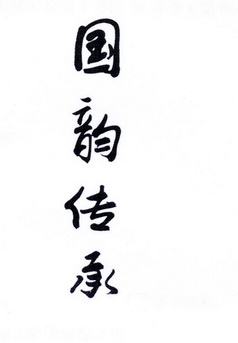 国韵传承